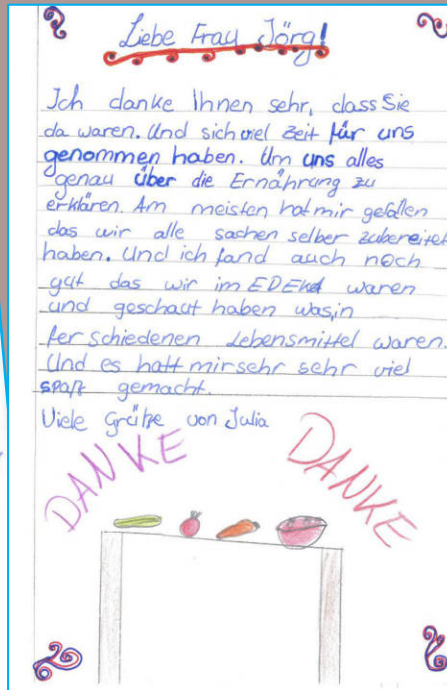 Liebe Frau Jörg!
Ich danke Ihnen sehr, dass Sie
da waren. Und sich viel Zeit für uns
genommen haben. Um uns alles
genau über die Ernährung zu
erklären. Am meisten hat mir gefallen
das wir alle sachen selber zubereitet
haben. Und ich fand auch noch
gut das wir im EDEKA waren
und geschaut haben was, in
fer schiedenen Lebensmittel waren.
Und es hatt mir sehr sehr viel
spaß gemacht.
Viele Grüße von Julia
DANKE DANKE